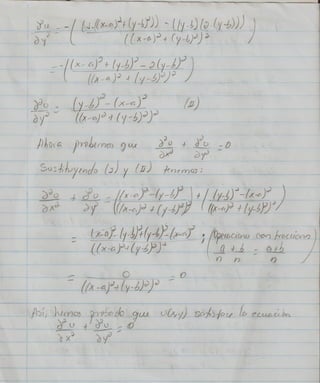 ∂²u/∂y² = -( (1·((x-a)²+(y-b)²)) - ((y-b)(2(y-b))) / ((x-a)² + (y-b)²)² )
= -( (x-a)² + (y-b)² - 2(y-b)² / ((x-a)² + (y-b)²)² )
∂²u/∂y² = (y-b)² - (x-a)² / ((x-a)² + (y-b)²)² (II)
Ahora probemos que ∂²u/∂x² + ∂²u/∂y² = 0
Sustituyendo (I) y (II) tenemos:
∂²u/∂x² + ∂²u/∂y² = ( (x-a)² - (y-b)² / ((x-a)² + (y-b)²)² ) + ( (y-b)² - (x-a)² / ((x-a)² + (y-b)²)² )
= (x-a)² - (y-b)² + (y-b)² - (x-a)² / ((x-a)² + (y-b)²)² ; (Operaciones con fracciones a/n + b/n = a+b/n)
= 0 / ((x-a)² + (y-b)²)² = 0
Así, hemos probado que u(x,y) satisface la ecuación
∂²u/∂x² + ∂²u/∂y² = 0